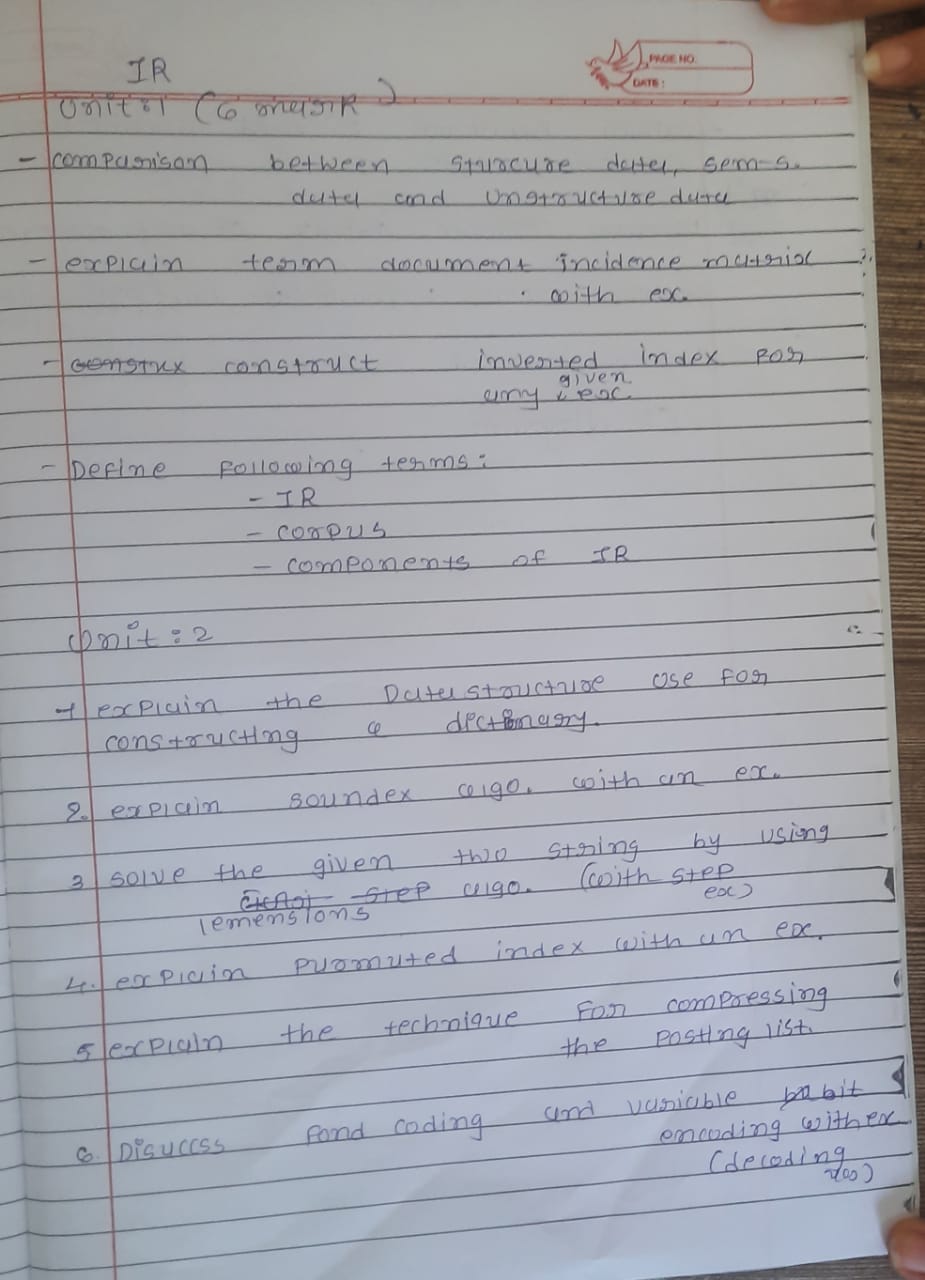 IR
PAGE NO.
DATE:
Unit:1 (6 mark)
- comparison between strucure data, sem-s.
data and unstructure data
- explain term document incidence matrix
with ex.
- construct inverted index for
any given ex.
- Define following terms:
- IR
- corpus
- components of IR
Unit: 2
1 explain the Data structure use for
constructing a dectionary.
2. explain soundex algo. with an ex.
3 solve the given two string by using
step algo. (with step
lemensions ex)
4. explain puromuted index with an ex.
5 explain the technique for compressing
the posting list.
6. Disuccss and coding and variable bit
encoding with ex
(decoding